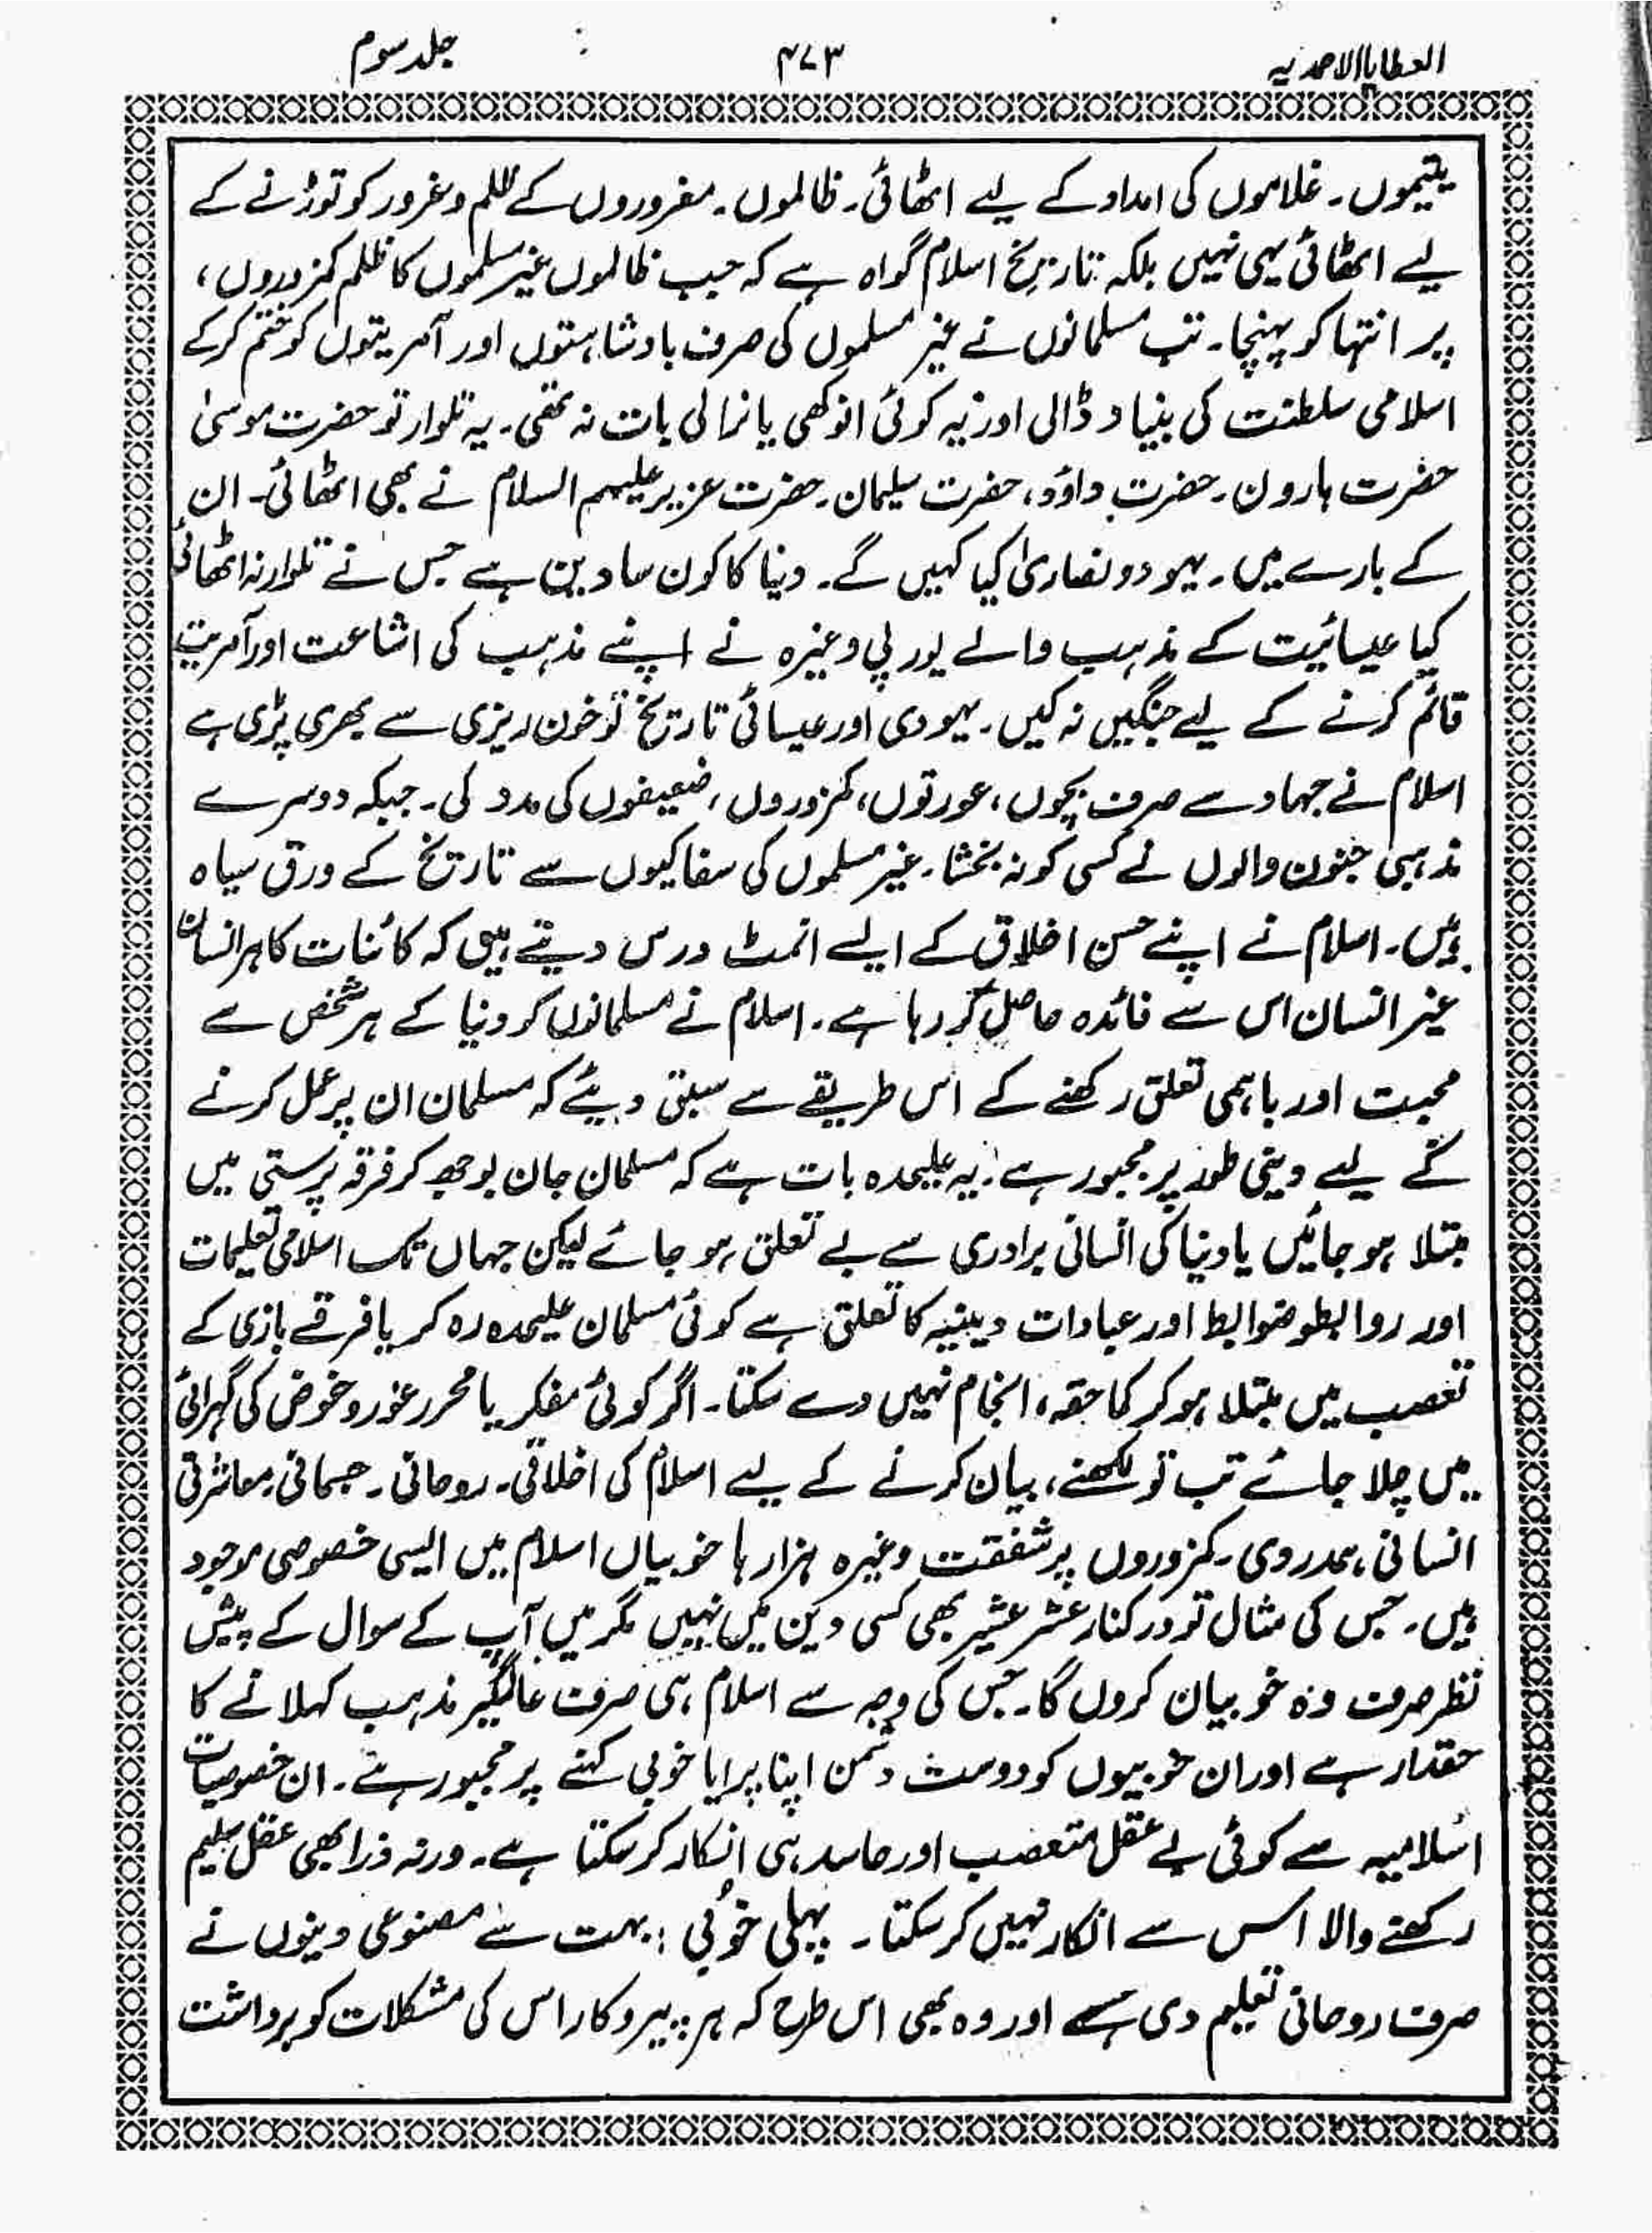 العطایا الاحمدیہ ۴۷۳ جلد سوم
یتیموں۔ غلاموں کی امداد کے لیے اٹھائی۔ ظالموں۔ مغروروں کے ظلم و غرور کو توڑنے کے
لیے اٹھائی یہی نہیں بلکہ تاریخ اسلام گواہ ہے کہ جب ظالموں غیر مسلموں کا ظلم کمزوروں،
پر انتہا کو پہنچا۔ تب مسلمانوں نے غیر مسلموں کی صرف بادشاہتوں اور آمریتوں کو ختم کرکے
اسلامی سلطنت کی بنیاد ڈالی اور یہ کوئی انوکھی یا نرالی بات نہ تھی۔ یہ تلوار تو حضرت موسیٰ
حضرت ہارون۔ حضرت داؤد، حضرت سلیمان۔ حضرت عزیر علیہم السلام نے بھی اٹھائی۔ ان
کے بارے میں۔ یہود و نصاریٰ کیا کہیں گے۔ دنیا کا کون سا دین ہے جس نے تلوار نہ اٹھائی
کیا عیسائیت کے مذہب والے یورپی وغیرہ نے اپنے مذہب کی اشاعت اور آمریت
قائم کرنے کے لیے جنگیں نہ کیں۔ یہودی اور عیسائی تاریخ تو خون ریزی سے بھری پڑی ہے
اسلام نے جہاد سے صرف بچوں، عورتوں، کمزوروں، ضعیفوں کی مدد کی۔ جبکہ دوسرے
مذہبی جنون والوں نے کسی کو نہ بخشا۔ غیر مسلموں کی سفاکیوں سے تاریخ کے ورق سیاہ
ہیں۔ اسلام نے اپنے حسن اخلاق کے ایسے انمٹ درس دیتے ہیں کہ کائنات کا ہر انسان
غیر انسان اس سے فائدہ حاصل کر رہا ہے۔ اسلام نے مسلمانوں کو دنیا کے ہر شخص سے
محبت اور باہمی تعلق رکھنے کے اس طریقے سے سبق دیئے کہ مسلمان ان پر عمل کرنے
کے لیے دینی طور پر مجبور ہے۔ یہ علیحدہ بات ہے کہ مسلمان جان بوجھ کر فرقہ پرستی میں
مبتلا ہو جائیں یا دنیا کی انسانی برادری سے بے تعلق ہو جائے لیکن جہاں تک اسلامی تعلیمات
اور روابط و ضوابط اور عبادات دینیہ کا تعلق ہے کوئی مسلمان علیحدہ رہ کر یا فرقے بازی کے
تعصب میں مبتلا ہو کر کما حقہ، انجام نہیں دے سکتا۔ اگر کوئی مفکر یا محرر غور و خوض کی گہرائی
میں چلا جائے تب تو لکھنے، بیان کرنے کے لیے اسلام کی اخلاقی۔ روحانی۔ جسمانی۔ معاشرتی
انسانی، ہمدردی۔ کمزوروں پر شفقت وغیرہ ہزارہا خوبیاں اسلام میں ایسی خصوصی موجود
ہیں۔ جس کی مثال تو درکنار عشر عشیر بھی کسی دین میں نہیں مگر میں آپ کے سوال کے پیش
نظر صرف وہ خوبیاں کروں گا۔ جس کی وجہ سے اسلام ہی صرف عالمگیر مذہب کہلانے کا
حقدار ہے اور ان خوبیوں کو دوست دشمن اپنا پرایا خوبی کہنے پر مجبور ہے۔ ان خصوصیات
اسلامیہ سے کوئی بے عقل متعصب اور حاسد ہی انکار کر سکتا ہے۔ ورنہ ذرا بھی عقل سلیم
رکھنے والا اس سے انکار نہیں کر سکتا۔ پہلی خوبی : بہت سے مصنوعی دینوں نے
صرف روحانی تعلیم دی ہے اور وہ بھی اس طرح کہ ہر پیروکار اس کی مشکلات کو برداشت